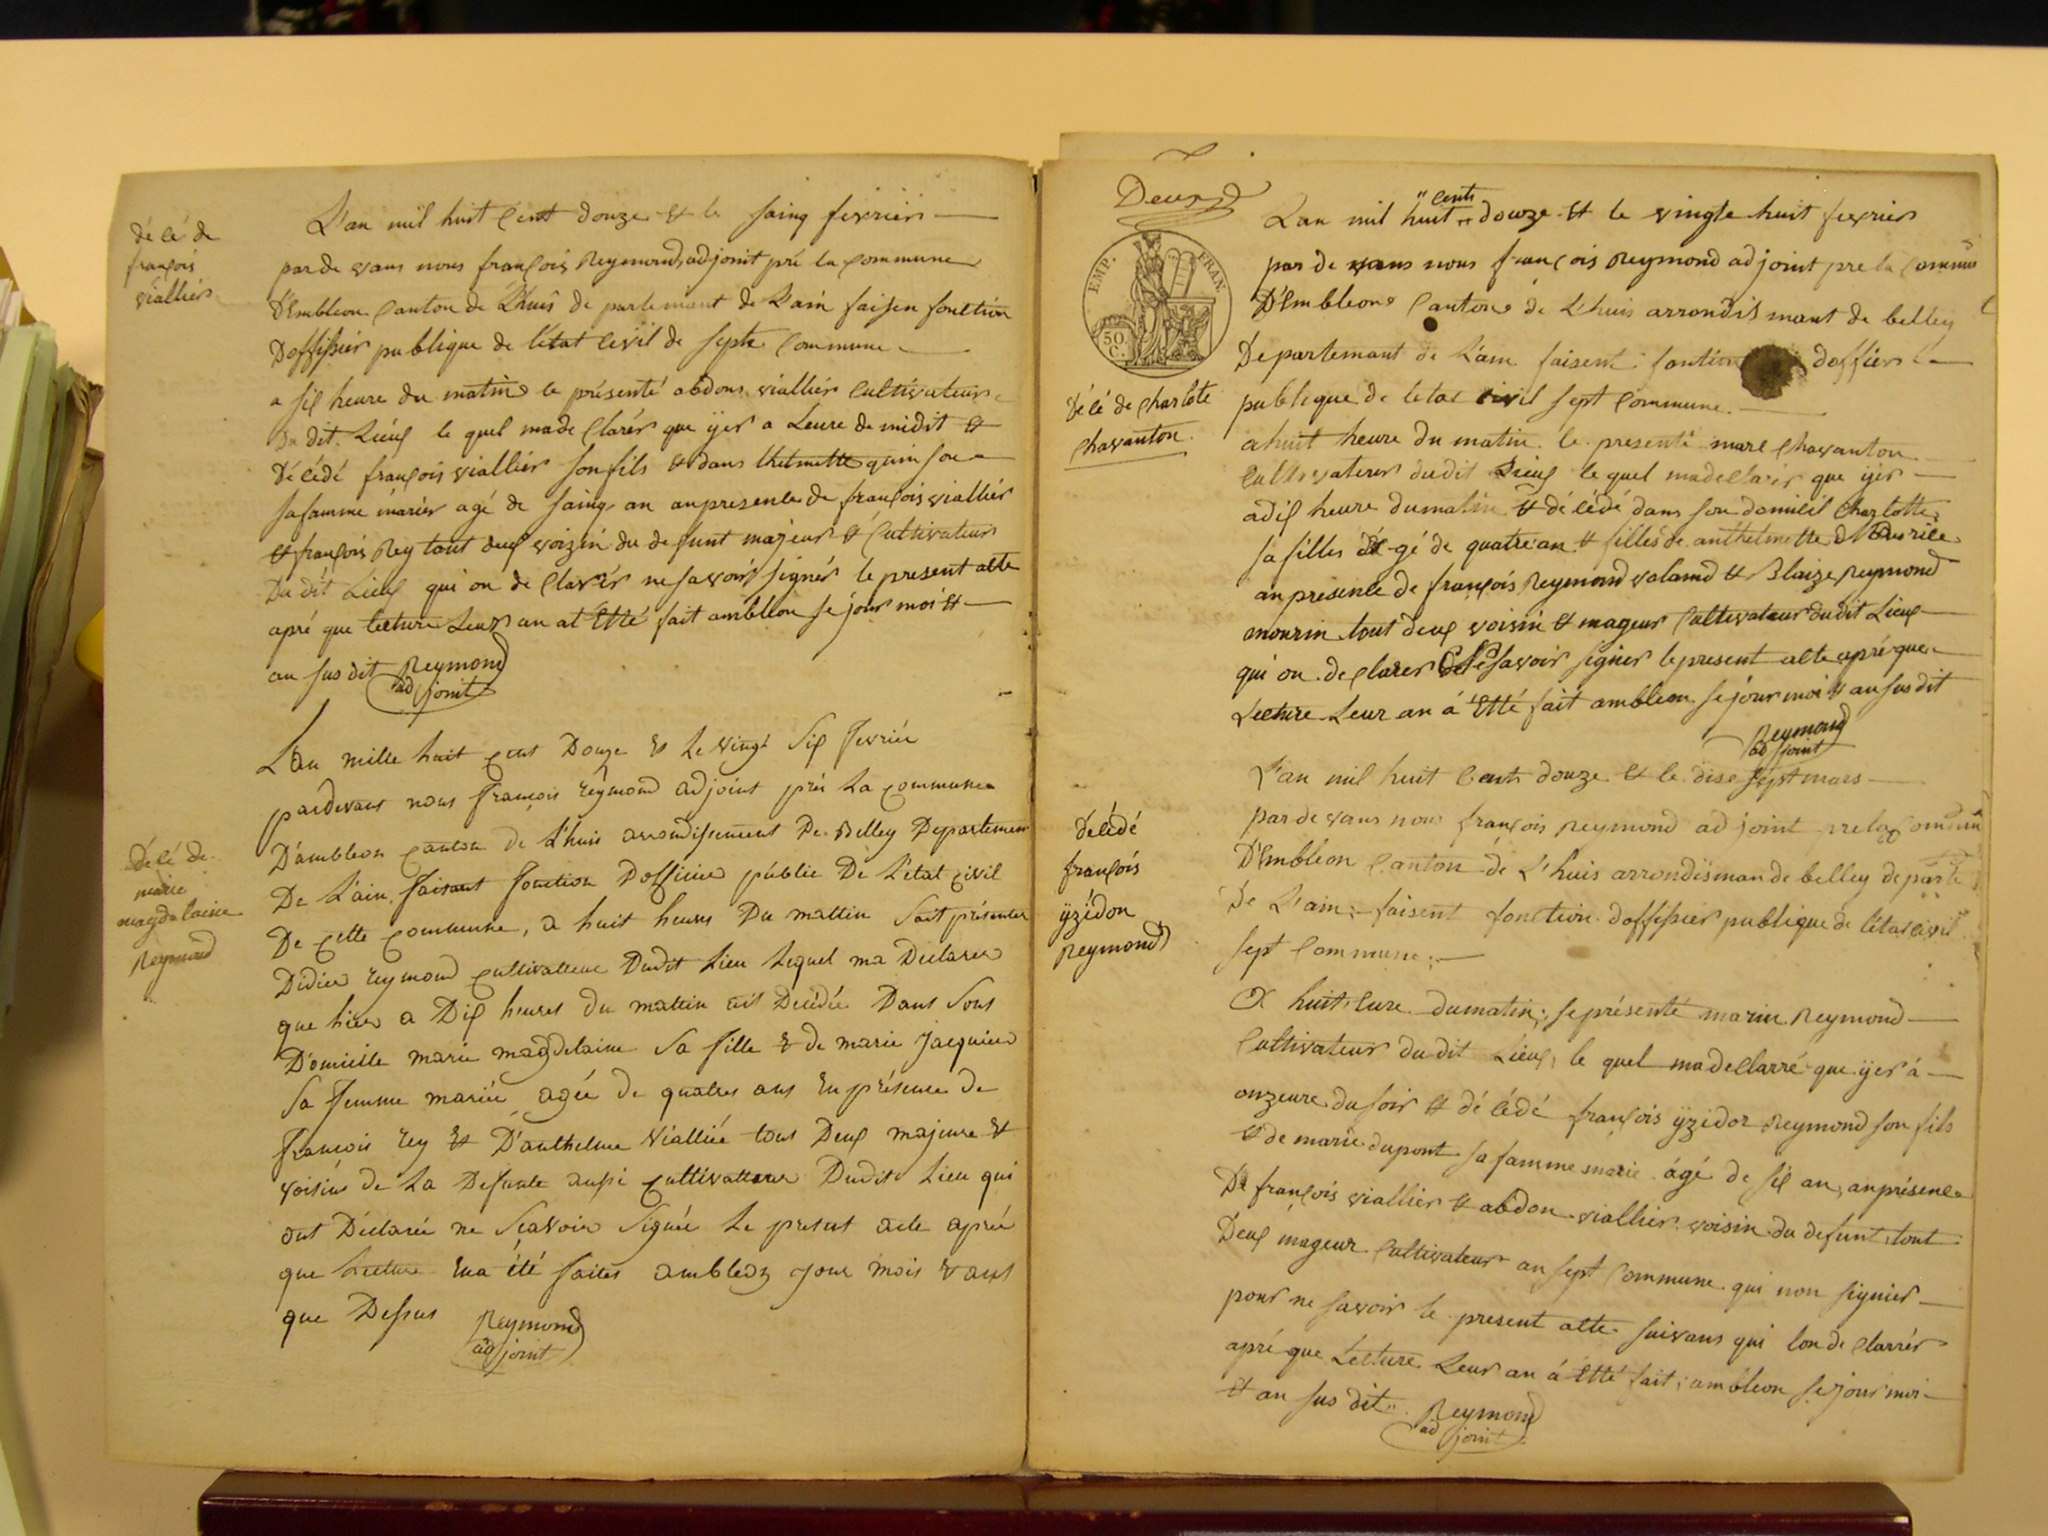 décé de
françois
viallier
L'an mil huit Cent douze et le sainq fevrier
par de vans nous françois Reymond adjoint pré la Commune
D'Embleon Canton de Lhuis de partemant de L'ain faisen fonction
Doffissier publique de létat Cevil de septe Commune
a six heure du matin le présenté abdons viallier Cultivateur
du dit Lieux le quel ma de Clarér que yer a Leure de midit et
décédé françois viallier son fils et dans thelmette
sa famme mariér agé de sainq an an presence de françois viallier
et françois Rey tout deux voizin du defunt majeur et Cultivateur
Du dit Lieux qui on de Clarér ne savoir signér le present acte
apré que lecture Leur an at Etté fait ambleon se jour moi et
an sus dit Reymond
ad joint
décé de
marie
magdelaine
Reymond
L'an mille huit cent Douze et Le vingt Six fevrier
pardevant nous françois reymond adjoint prés La commune
D'ambleon canton de L'huis arrondissement De Belley Departement
De L'ain faisant fonction D'officier public De L'état civil
De cette commune, a huit heures Du mattin sait présenter
Didier reymond cultivatteur Dudit Lieu Lequel ma Déclarer
que hier a Dix heures du mattin est Décédée Dans Sons
Domicille marie magdelaine Sa fille et de marie Jacquier
Sa femme mariée agée De quatres ans En présence de
françois rey et D'anthelme Viallié tous Deux majeure et
voisins de La Defunte aussi cultivatteur Dudit Lieu qui
ont Déclarée ne Scavoir Signée Le present acte aprée
que Lecture En a été faites ambleon jour mois et ans
que Dessus Reymond
ad joint
Deux
EMP. FRAN.
50 C.
décé de charlote
chavanton
Lan mil huit " Cents douze et le vingte huit fevrier
par de vans nous françois Reymond adjoint pre la Commune
D'Embleon Canton de Lhuis arrondis mant de belley
Departemant de L'ain faisent fontion doffier
publique de letat civil sept Commune.
a huit heure du matin le presenté marc Chavanton
Cultivateur du dit Lieux le quel ma declarér que yér
a dix heure du matin et décédé dans son domicil Charlotte
sa filles agé de quatre an et filles de anthelmette
an presence de françois Reymond et Blaize Reymond
mourin tout deux voisin et mageur Cultivateur du dit Lieux
qui on de Clarer ne savoir signer le present acte apré que
Lecture Leur an á Etté fait ambleon se jour moi et an sus dit
Reymond
ad joint
décédé
françois
yzidor
Reymond
L'an mil huit Cents douze et le dise sept mars
par de vans nous françois Reymond ad joint pre la Commune
D'Embleon Canton de L'huis arrondisman de belley departe
De L'ain, faisent fonction doffissier publique de létat civil
sept Commune,
A huit, eure du matin, se présenté marin Reymond
Cultivateur du dit Lieux, le quel ma de Clarré que yer á
onzeure du soir et décédé françois yzidor Reymond son fils
et de marie dupont sa famme marie ágé de six an, an présence
De françois viallier et abdon viallier voisin du defunt, tout
Deux mageur Cultivateur an sept Commune qui non signier
pour ne savoir le present acte suivans qui lon de Clarrér
apré que Lécture Leur an á Etté fait, ambleon se jour moi
et an sus dit. Reymond
ad joint